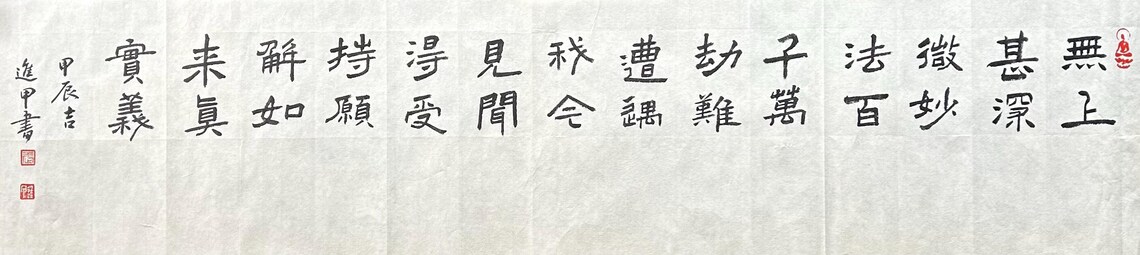 無上
甚深
微妙
法百
千萬
劫難
遭遇
我今
見聞
得受
持願
解如
来真
實義
甲辰吉
進甲書